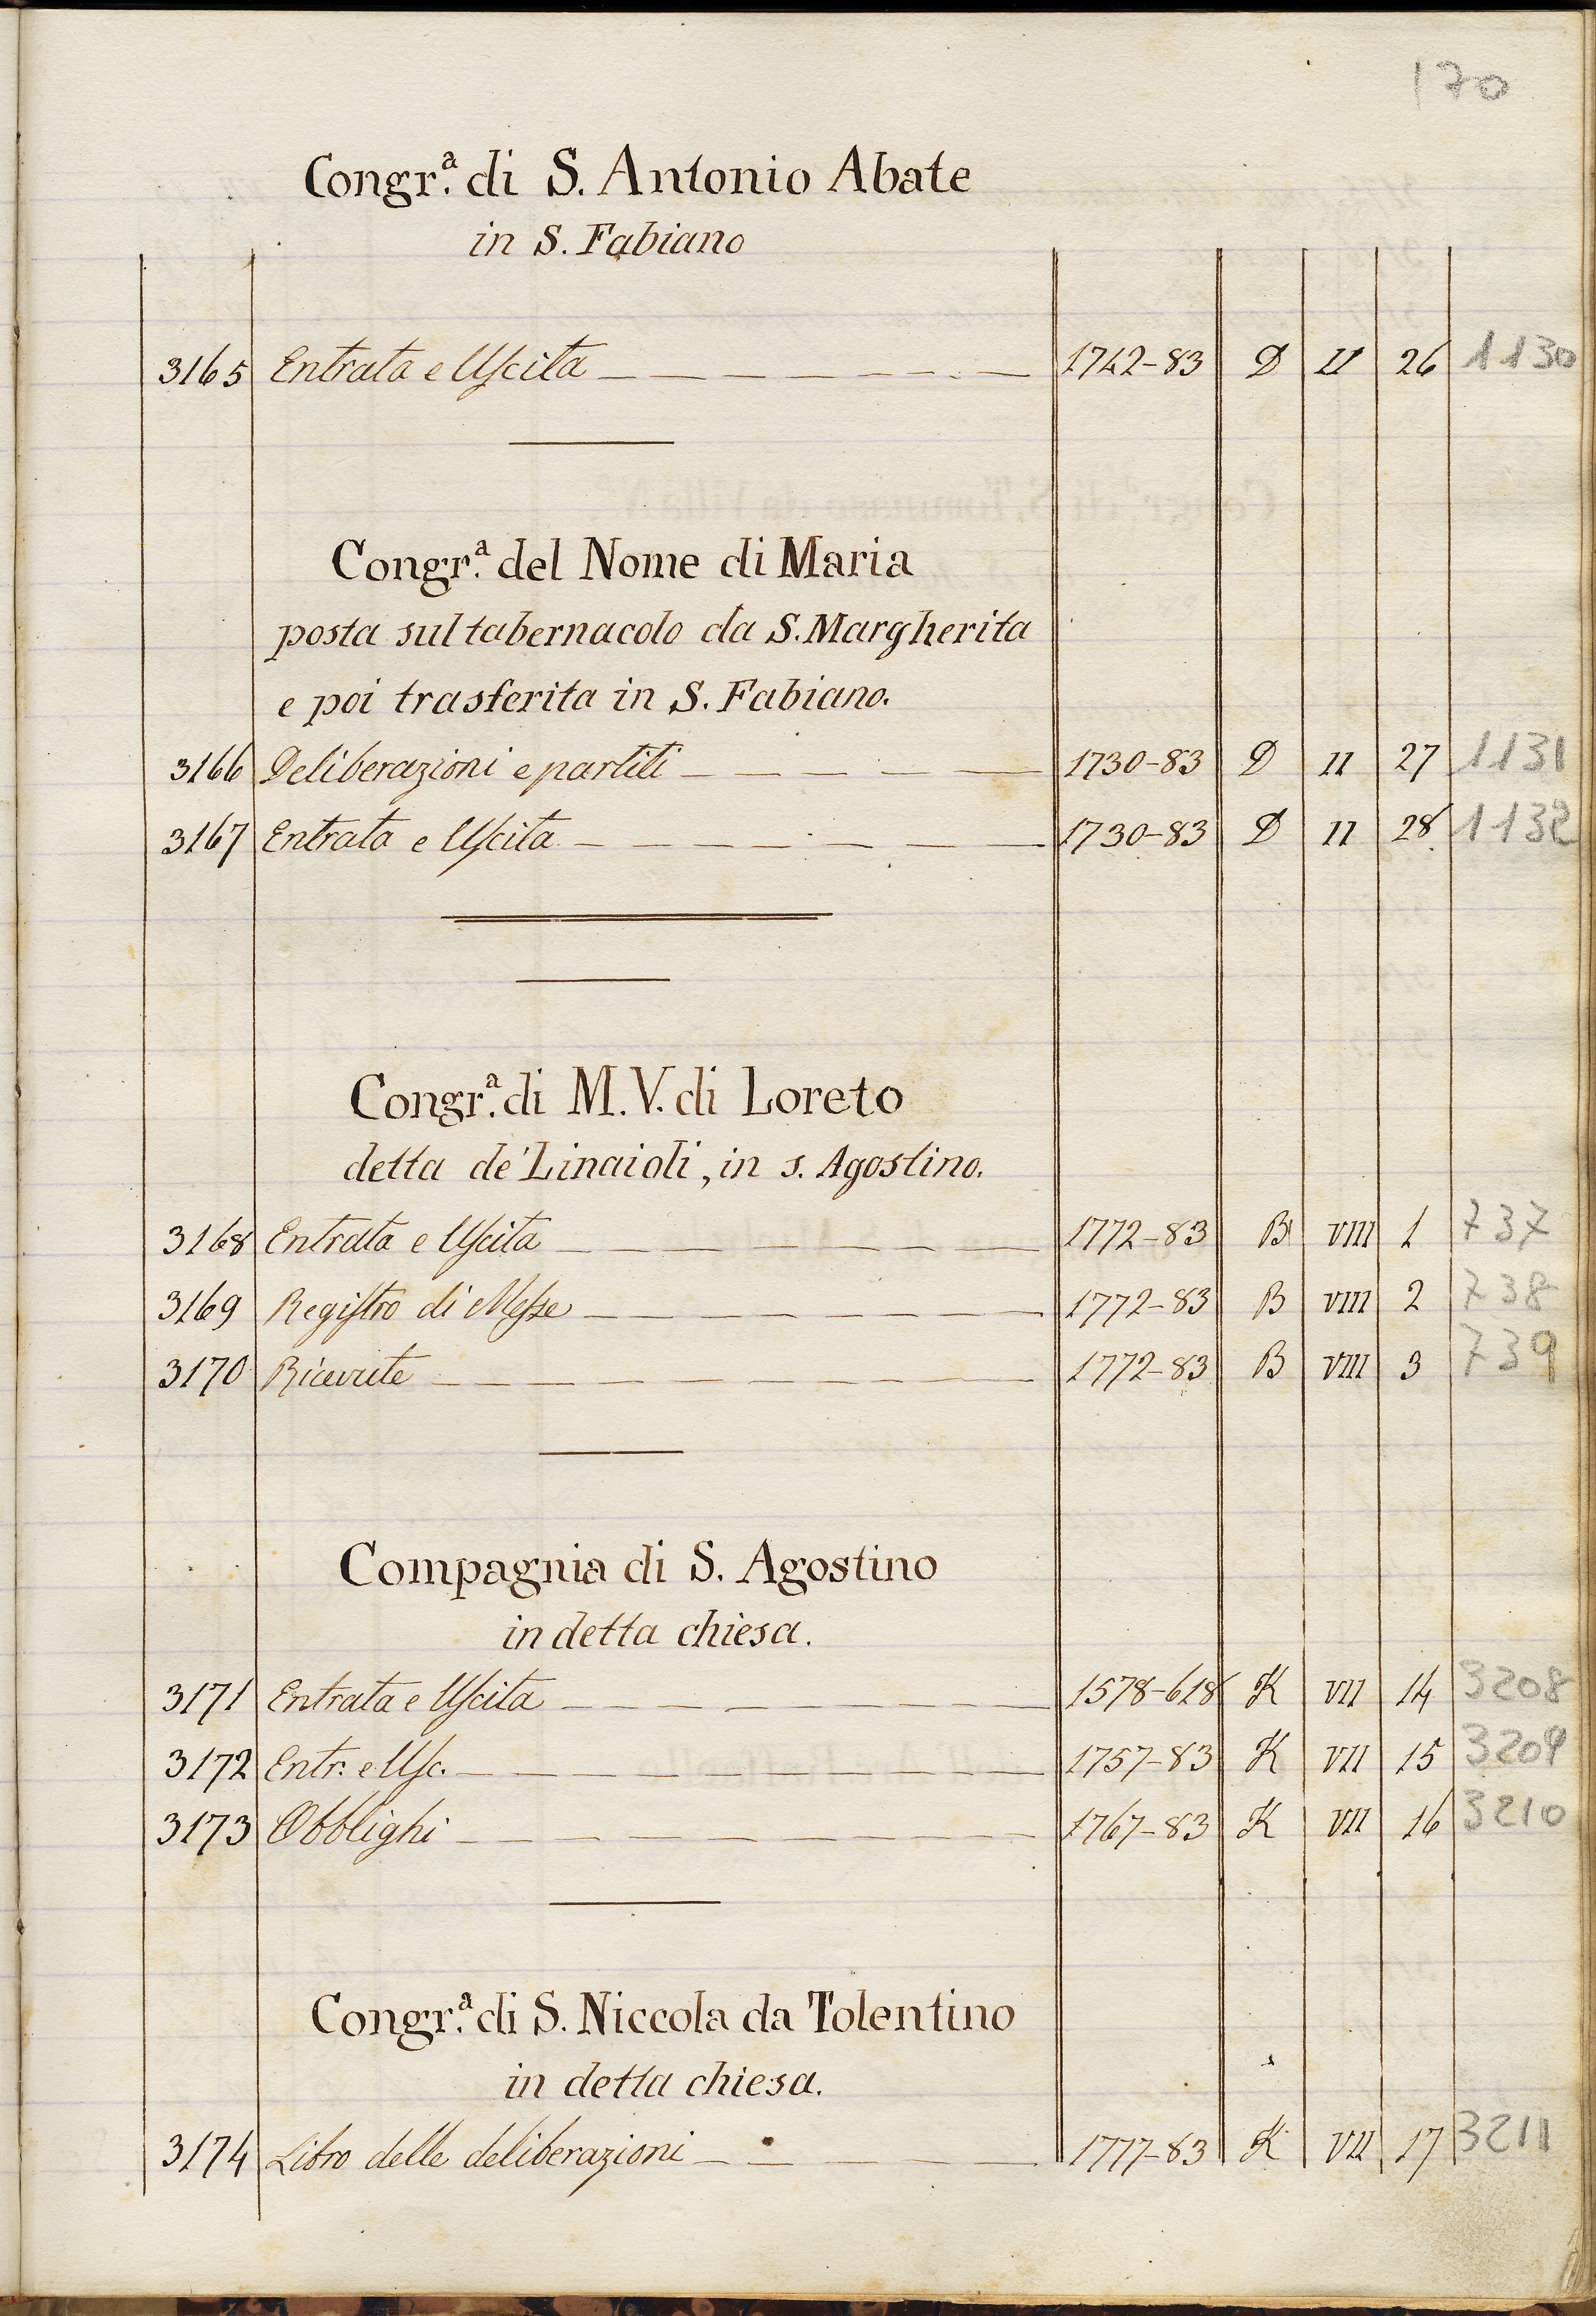 170
Congr.ª di S. Antonio Abate
in S. Fabiano
3165 Entrata e Uscita 1742-83 D II 26 1130
Congr.ª del Nome di Maria
posta sul tabernacolo da S. Margherita
e poi trasferita in S. Fabiano.
3166 Deliberazioni e partiti 1730-83 D II 27 1131
3167 Entrata e Uscita 1730-83 D II 28 1132
Congr.ª di M. V. di Loreto
detta de' Linaioli, in s. Agostino.
3168 Entrata e Uscita 1772-83 B VIII 1 737
3169 Registro di Messe 1772-83 B VIII 2 738
3170 Ricevute 1772-83 B VIII 3 739
Compagnia di S. Agostino
in detta chiesa.
3171 Entrata e Uscita 1578-618 K VII 14 3208
3172 Entr. e Usc. 1757-83 K VII 15 3209
3173 Obblighi 1767-83 K VII 16 3210
Congr.ª di S. Niccola da Tolentino
in detta chiesa.
3174 Libro delle deliberazioni 1777-83 K VII 17 3211